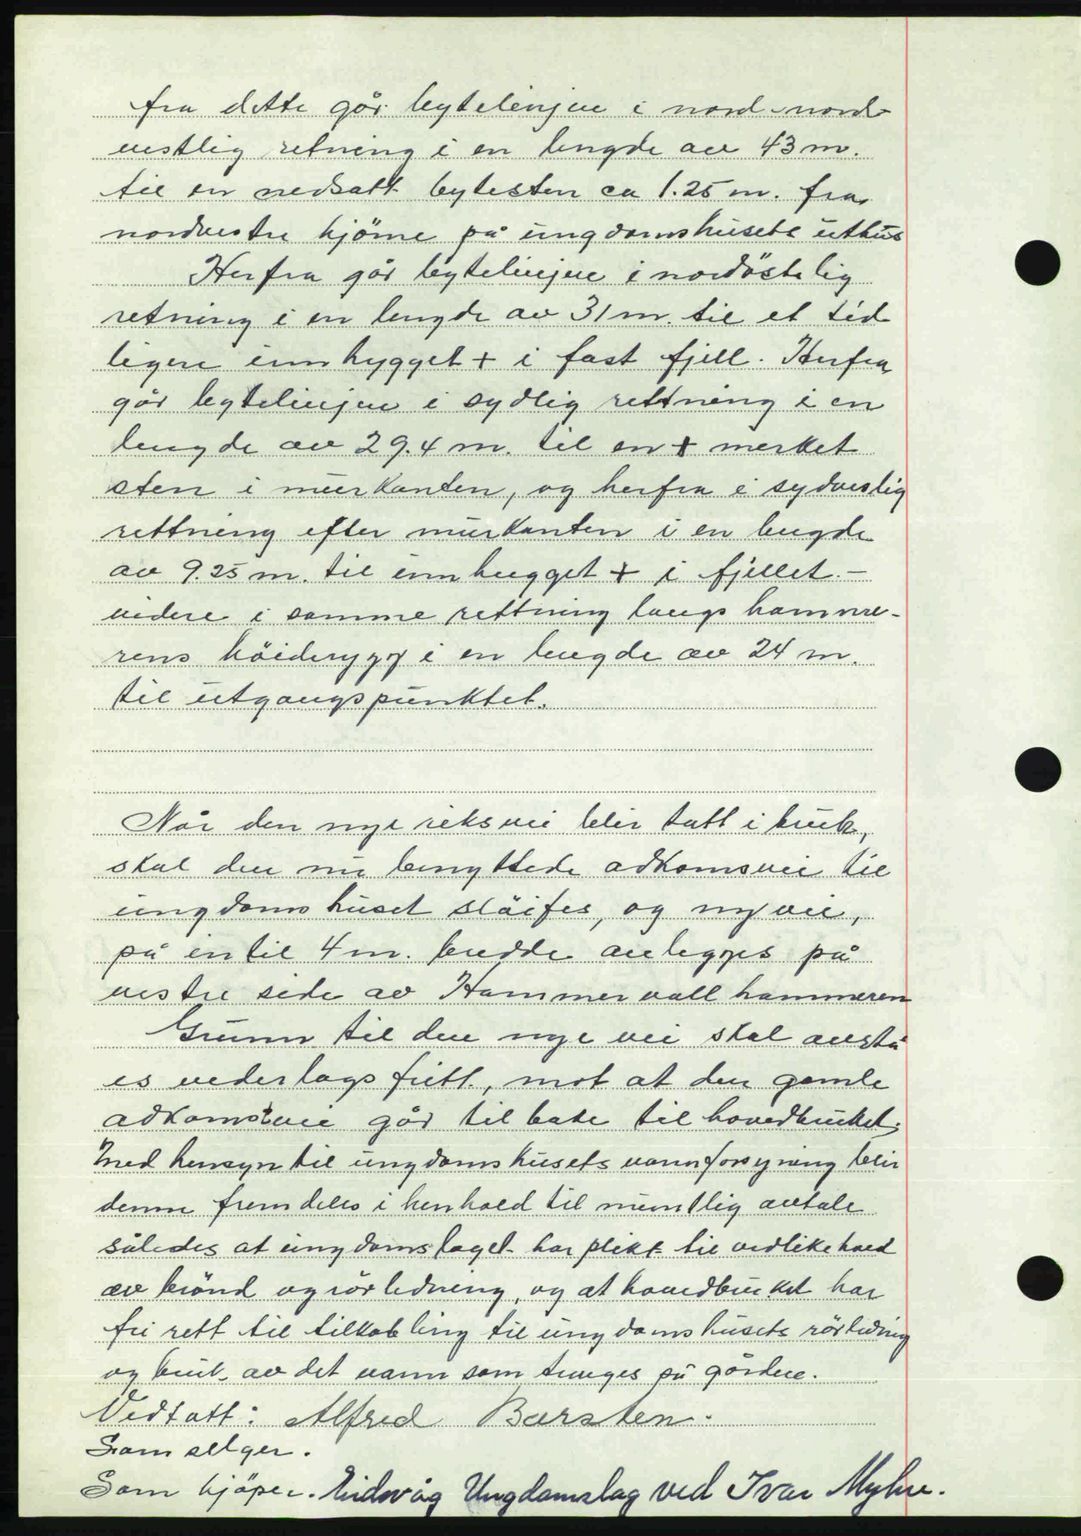 fra dette går bytelinjen i nord-nord
vestlig retning i en lengde av 43 m.
til en nedsatt bytesten ca 1.25 m. fra
nordvestre hjörne på ungdomshusets uthus
Herfra går bytelinjen i nordöstlig
retning i en lengde av 31 m. til et tid
ligere innhygget + i fast fjell. Herfra
går bytelinjen i sydlig rettning i en
lengde av 29.4 m. til en + merket
sten i murkanten, og herfra i sydveslig
rettning efter murkanten i en lengde
av 9.25 m. til innhugget + i fjellet. -
videre i samme rettning langs hamme-
rens höiderygg i en lengde av 24 m.
til utgangspunktet.
Når den nye riksvei blir tatt i bruk,
skal den nu benyttede adkomsvei til
ungdomshuset slöifes, og ny vei,
på intil 4 m. bredde anlegges på
vestre side av Hammervollhammeren
Grunn til den nye vei skal avstå
es vederlagsfritt, mot at den gamle
adkomstvei går tilbake til hovedbruket.
Med hensyn til ungdomshusets vannforsyning blir
denne fremdeles i henhold til muntlig avtale
således at ungdomslaget har plikt til vedlikehold
av brönd og rörledning, og at hovedbruket har
fri rett til tilkobling til ungdomshusets rörledning
og bruk av det vann som trenges på gården.
Vedtatt: Alfred Barsten.
Som selger.
Som kjöper. Eidsvåg Ungdomslag ved Ivar Myhre.